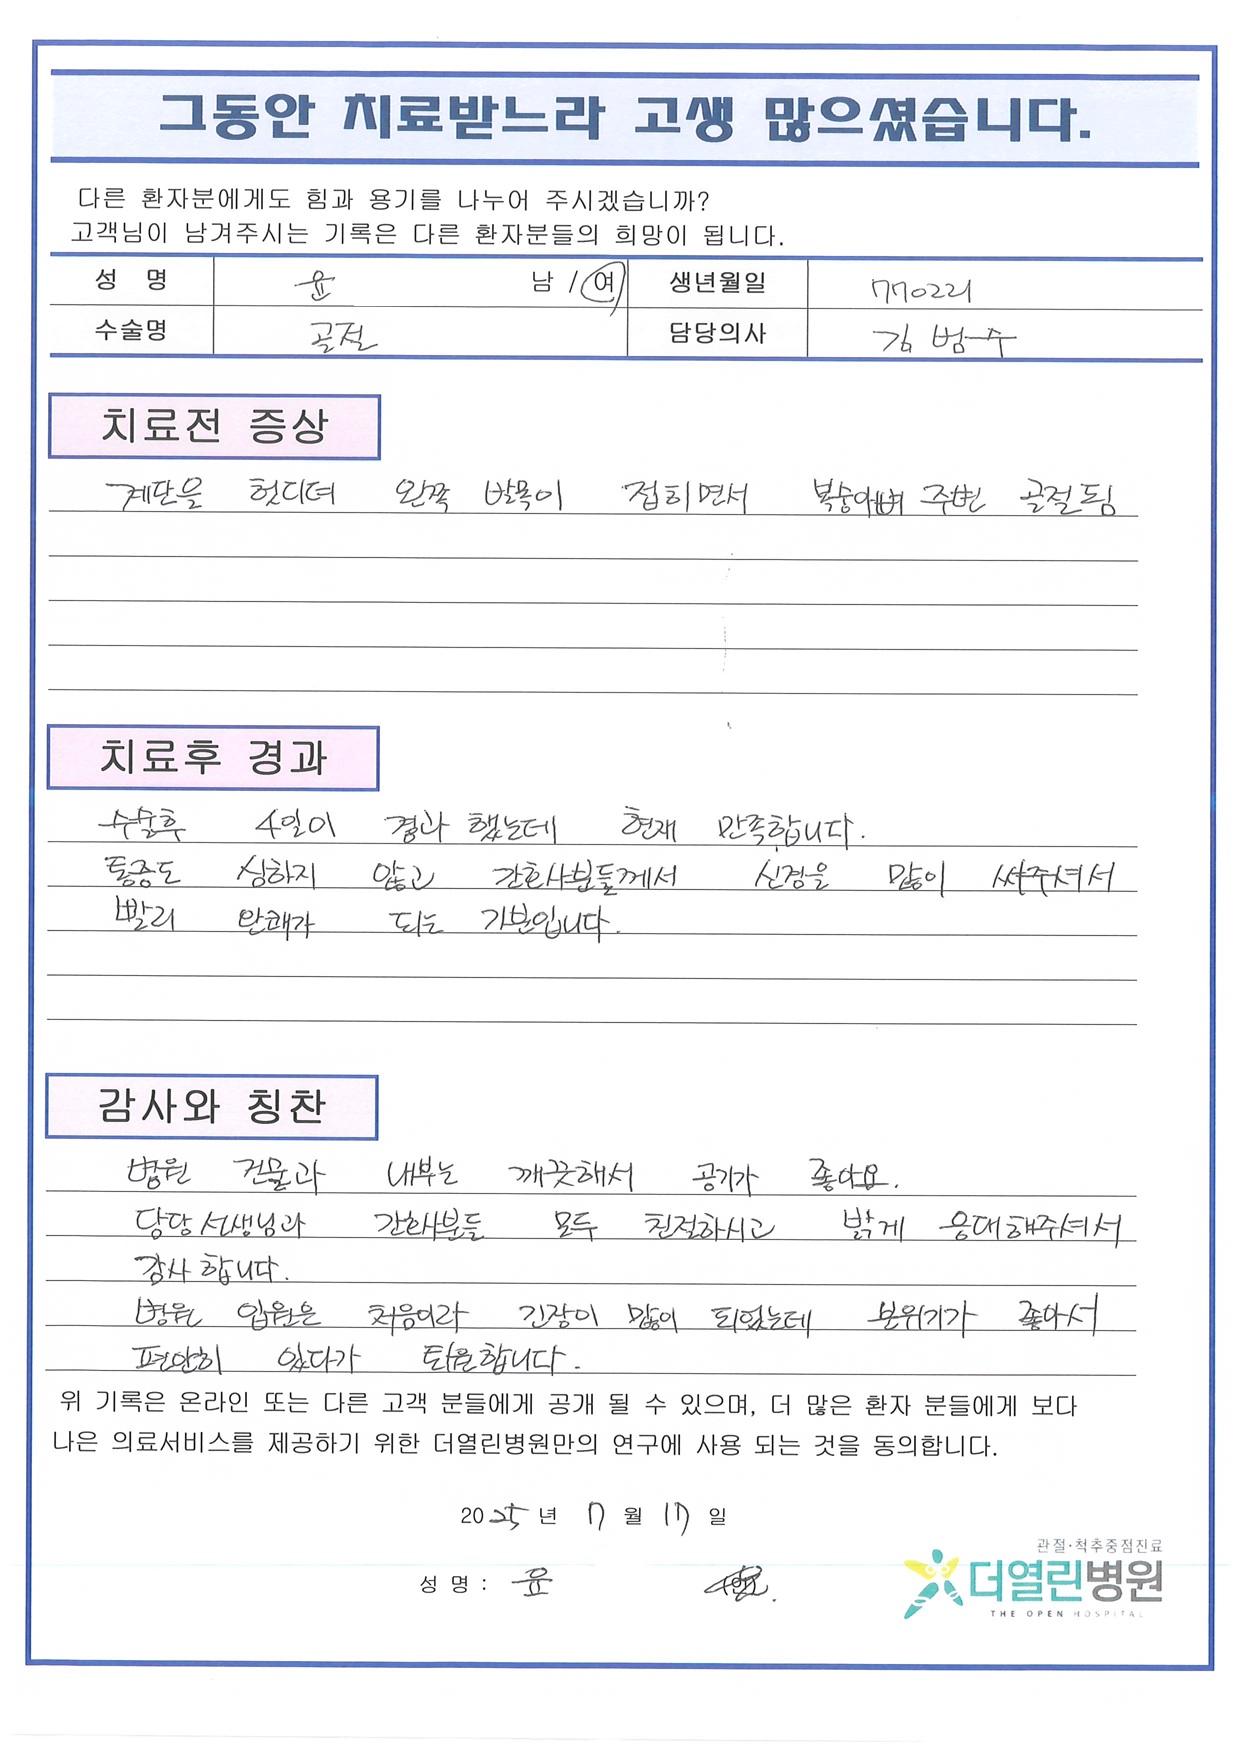 그동안 치료받느라 고생 많으셨습니다.
다른 환자분에게도 힘과 용기를 나누어 주시겠습니까?
고객님이 남겨주시는 기록은 다른 환자분들의 희망이 됩니다.
성 명 윤 남 / 여 생년월일 770221
수술명 골절 담당의사 김범수
치료전 증상
계단을 헛디뎌 왼쪽 발목이 접히면서 복숭아뼈 주변 골절됨
치료후 경과
수술후 4일이 경과했는데 현재 만족합니다.
통증도 심하지 않고 간호사분들께서 신경을 많이 써주셔서
빨리 완쾌가 되는 기분입니다.
감사와 칭찬
병원 건물과 내부는 깨끗해서 공기가 좋아요.
담당선생님과 간호사분들 모두 친절하시고 밝게 응대해주셔서
감사합니다.
병원 입원은 처음이라 긴장이 많이 되었는데 분위기가 좋아서
편안히 있다가 퇴원합니다.
위 기록은 온라인 또는 다른 고객 분들에게 공개 될 수 있으며, 더 많은 환자 분들에게 보다
나은 의료서비스를 제공하기 위한 더열린병원만의 연구에 사용 되는 것을 동의합니다.
2025년 7월 17일
관절·척추중점진료
성 명 : 윤
더열린병원
THE OPEN HOSPITAL